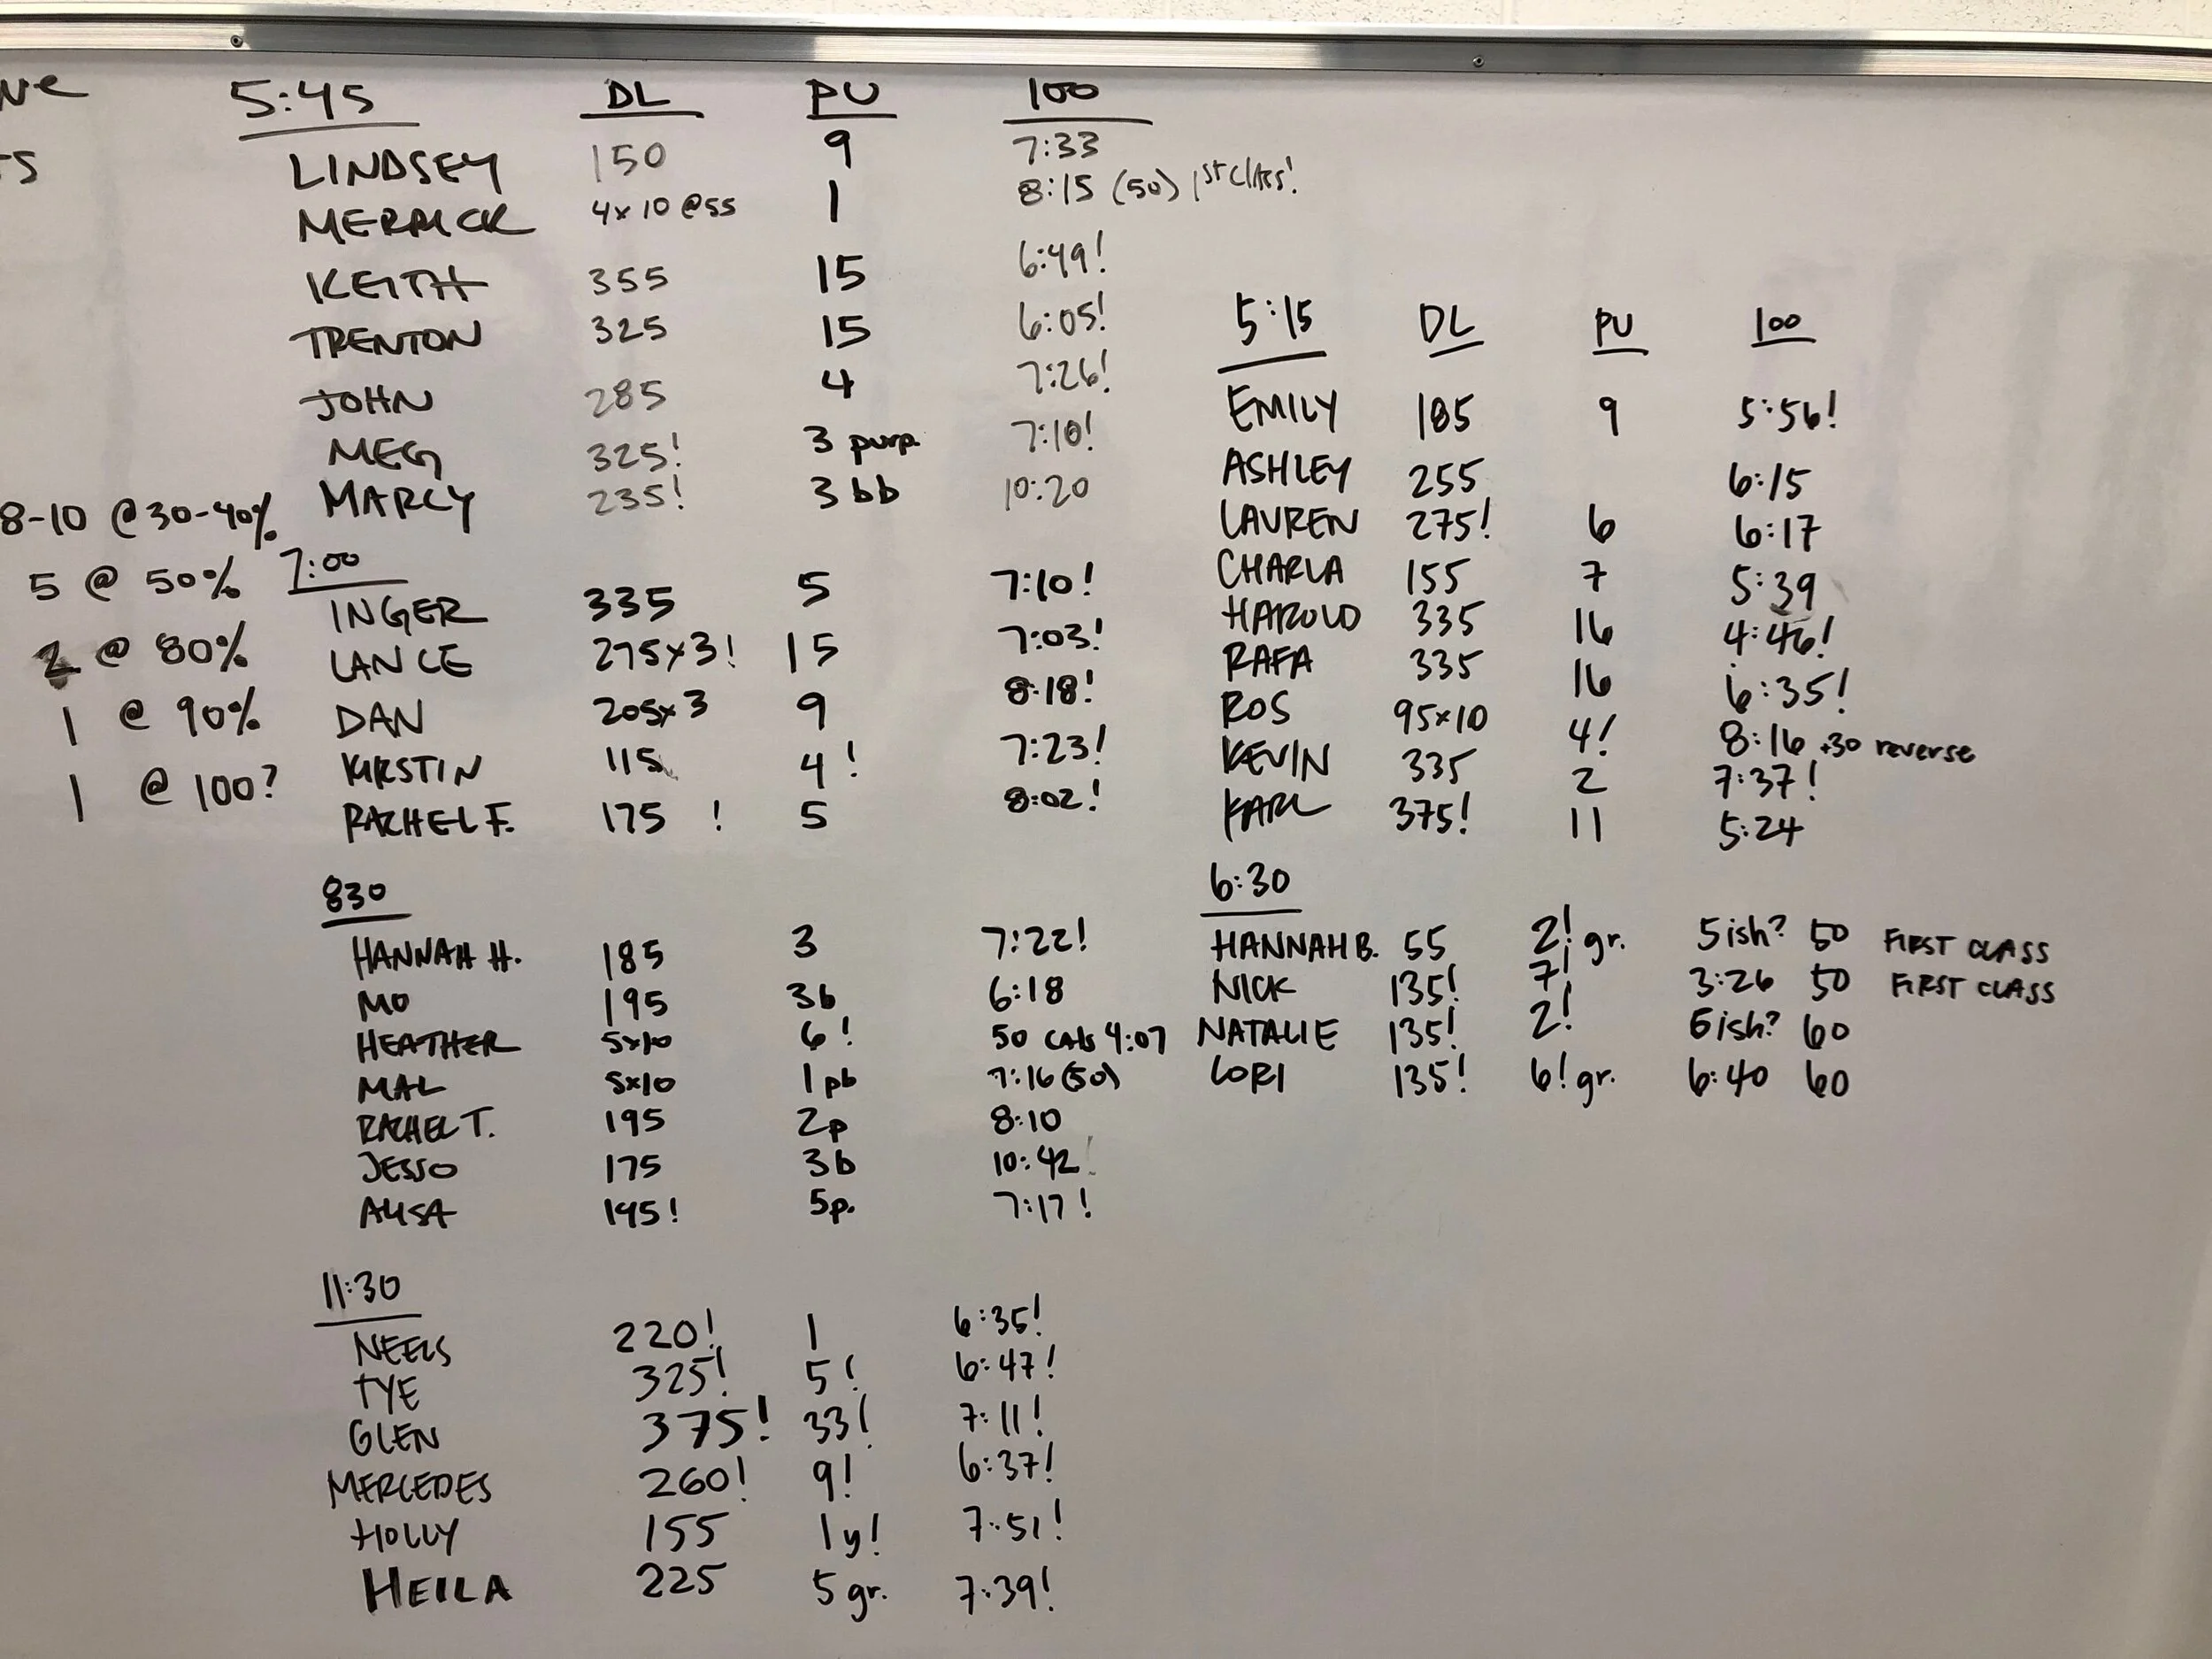 5:45 DL PU 100
LINDSEY 150 9 7:33
MERRICK 4x10 @55 1 8:15 (50) 1ST CLASS!
KEITH 355 15 6:49!
TRENTON 325 15 6:05!
JOHN 285 4 7:26!
MEG 325! 3 purp. 7:10!
MARCY 235! 3 bb 10:20
8-10 @ 30-40%
5 @ 50%
2 @ 80%
1 @ 90%
1 @ 100?
7:00
INGER 335 5 7:10!
LANCE 275x3! 15 7:03!
DAN 205x3 9 8:18!
KIRSTIN 115 4! 7:23!
RACHEL F. 175 ! 5 8:02!
830
HANNAH H. 185 3 7:22!
MO 195 3b 6:18
HEATHER 5x10 6! 50 CALS 4:07
MAL 5x10 1 pb 7:16 (50)
RACHEL T. 195 2p 8:10
JESSO 175 3b 10:42
ALISA 195! 5p. 7:17!
11:30
NEELS 220! 1 6:35!
TYE 325! 5! 6:47!
GLEN 375! 33! 7:11!
MERCEDES 260! 9! 6:37!
HOLLY 155 1y! 7:51!
HEILA 225 5 gr. 7:39!
5:15 DL PU 100
EMILY 185 9 5:56!
ASHLEY 255 6:15
LAUREN 275! 6 6:17
CHARLA 155 7 5:39
HAROLD 335 16 4:46!
RAFA 335 16 6:35!
ROS 95x10 4! 8:16 +30 reverse
KEVIN 335 2 7:37!
KARL 375! 11 5:24
6:30
HANNAH B. 55 2! gr. 5ish? 50 FIRST CLASS
NICK 135! 7! 3:26 50 FIRST CLASS
NATALIE 135! 2! 6ish? 60
LORI 135! 6! gr. 6:40 60